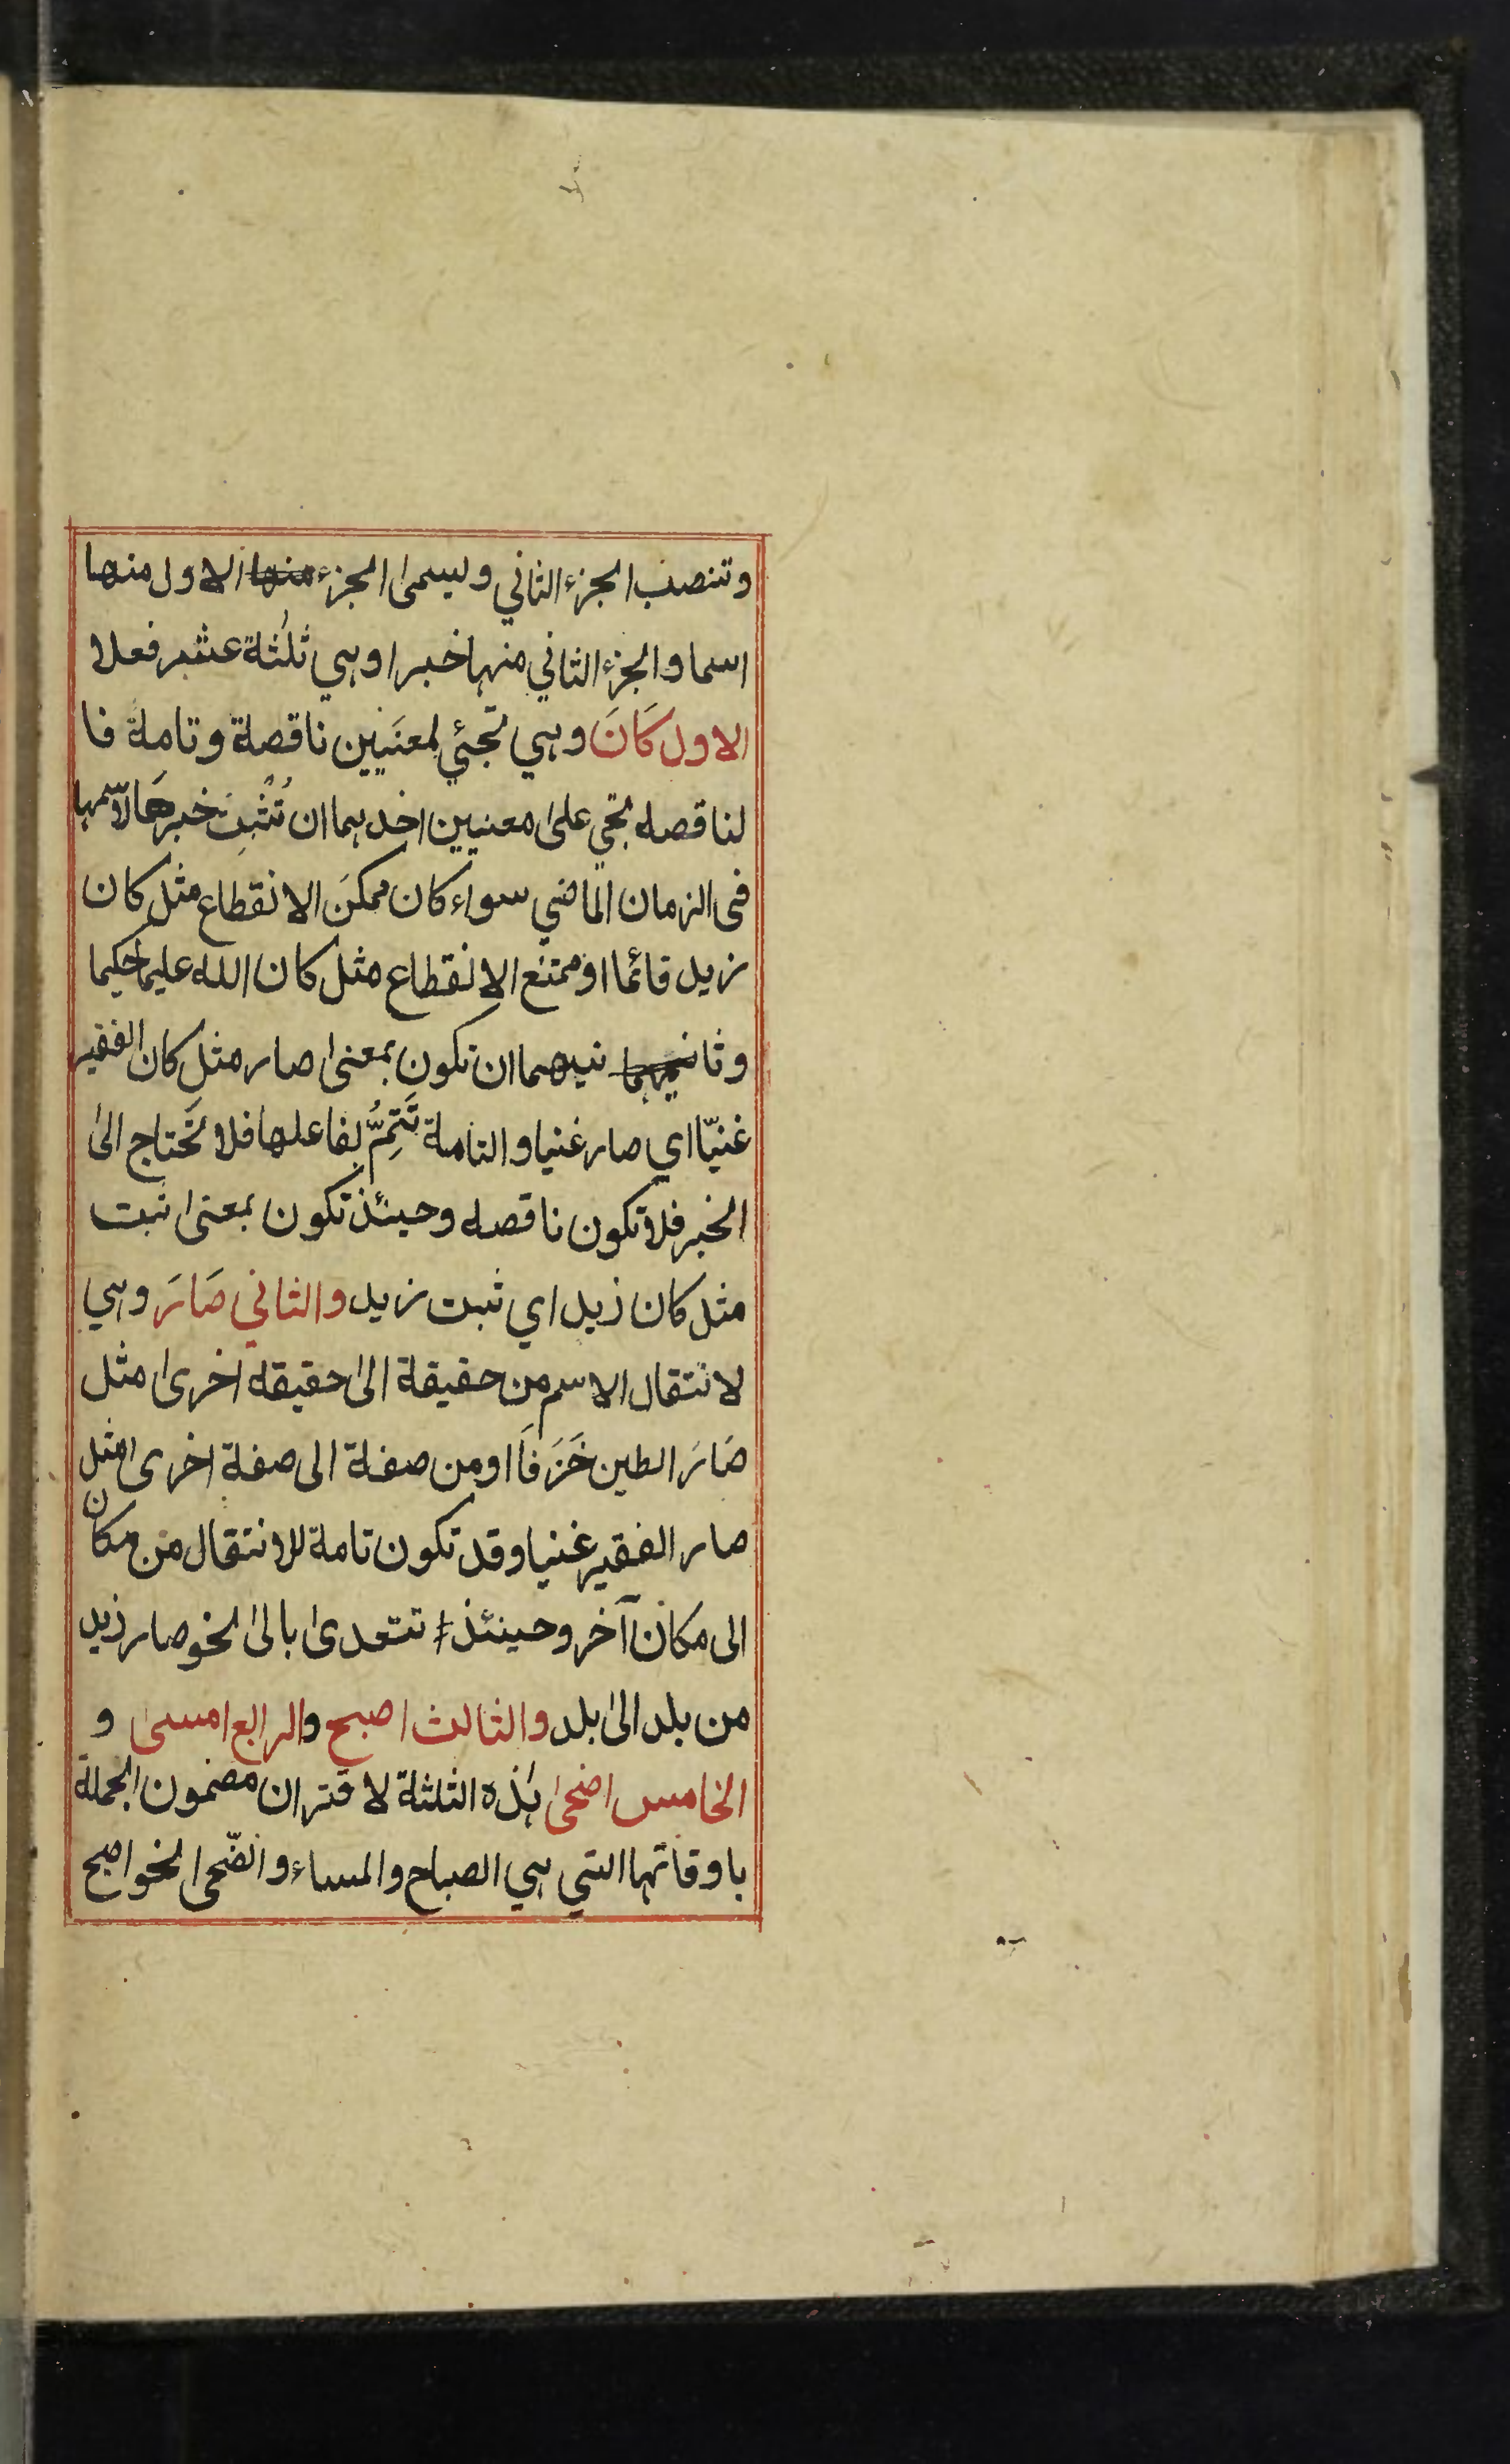 وتنصب الجزء الثاني ويسمى الجزء منها الاول منها
اسما والجزء الثاني منها خبرا وهي ثلٰثة عشر فعلا
الاول كَانَ وهي تجئي لمعنَيين ناقصة وتامة فا
لناقصه تجي على معنيين احدهما ان تُثْبِتَ خبرهَا لاسمها
فى الزمان الماضي سواء كان ممكنَ الانقطاع مثل كان
زيد قائما او ممتنع الانقطاع مثل كان الله عليما حكيما
وثانيهما نيهما ان تكون بمعنى صار مثل كان الفقير
غنيّا اي صار غنيا والتامة تَتِمُّ بفاعلها فلا تَحتاج الىٰ
الخبر فلا تكون ناقصه وحينئذ تكون بمعنى ثبت
مثل كان زيد اي ثبت زيد والثاني صَارَ وهي
لانتقال الاسم من حقيقة الىٰ حقيقه اخرى مثل
صَارَ الطين خَزَفَا او من صفة الى صفة اخرى مثل
صار الفقير غنيا وقد تكون تامة للانتقال من مكان
الى مكان آخر وحينئذ تتعدى بالىٰ نحو صار زيد
من بلد الىٰ بلد والثالث اصبح والرابع امسىٰ و
الخامس اضحىٰ هذه الثلثة لاقتران مضمون الجملة
باوقاتها التي هي الصباح والمساء والضّحى نحو اصبح